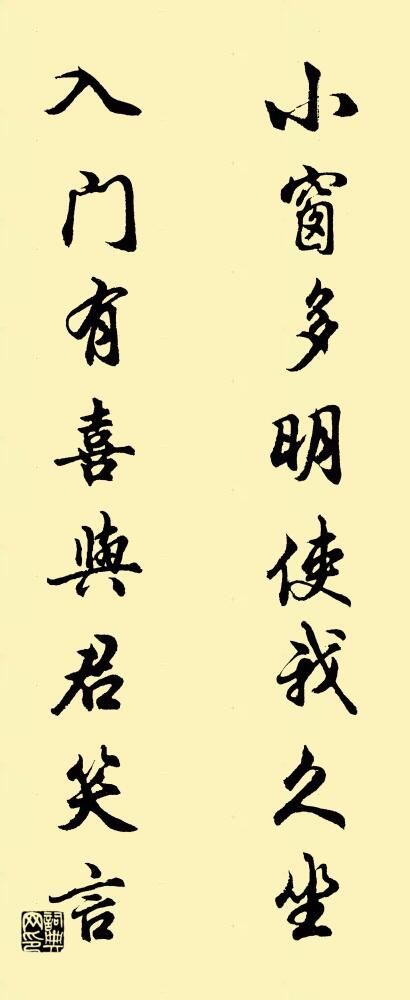 小窗多明使我久坐
入门有喜與君笑言
詞典網印